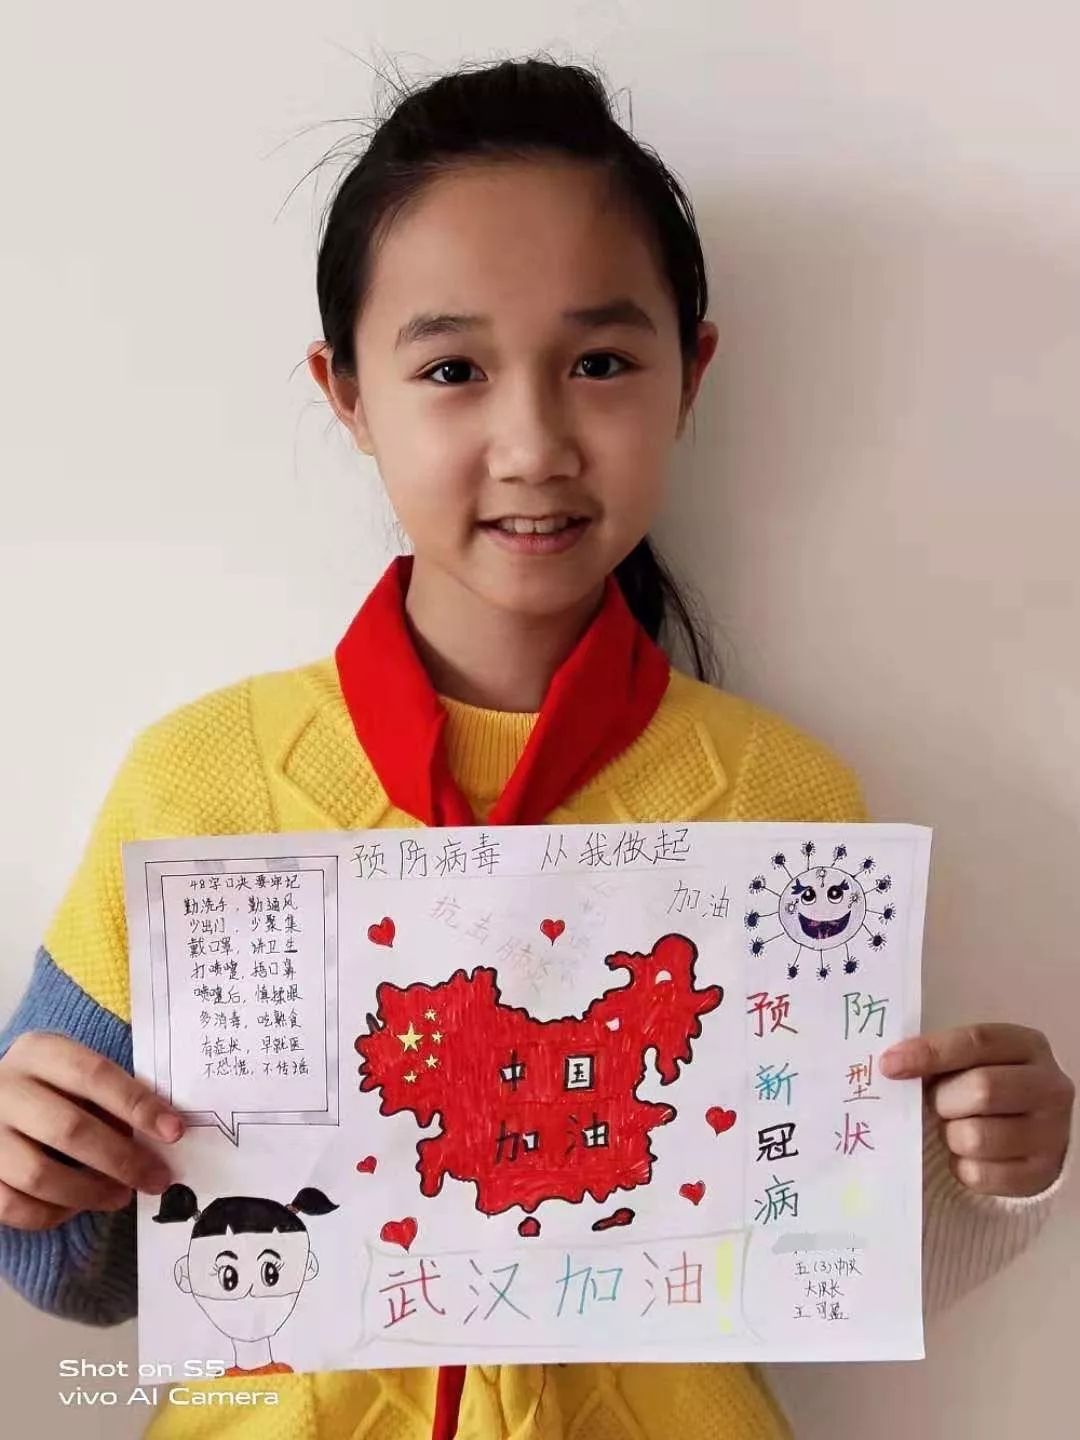 预防病毒 从我做起
48字口决要牢记
勤洗手，勤通风
少出门，少聚集
戴口罩，讲卫生
打喷嚏，捂口鼻
喷嚏后，慎揉眼
多消毒，吃熟食
有症状，早就医
不恐慌，不传谣
抗击肺炎
加油
中国
加油
预防
新型
冠状
病
武汉加油！
五(3)中队
大队长
王可盈
Shot on S5
vivo AI Camera